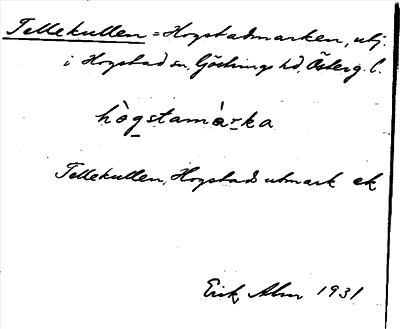 Tellekullen = Hogstadmarken, utj.
i Hogstad sn, Göstrings hd, Österg. l.
hògstamàrka
Tellekullen, Hogstads utmark ek
Erik Alm 1931